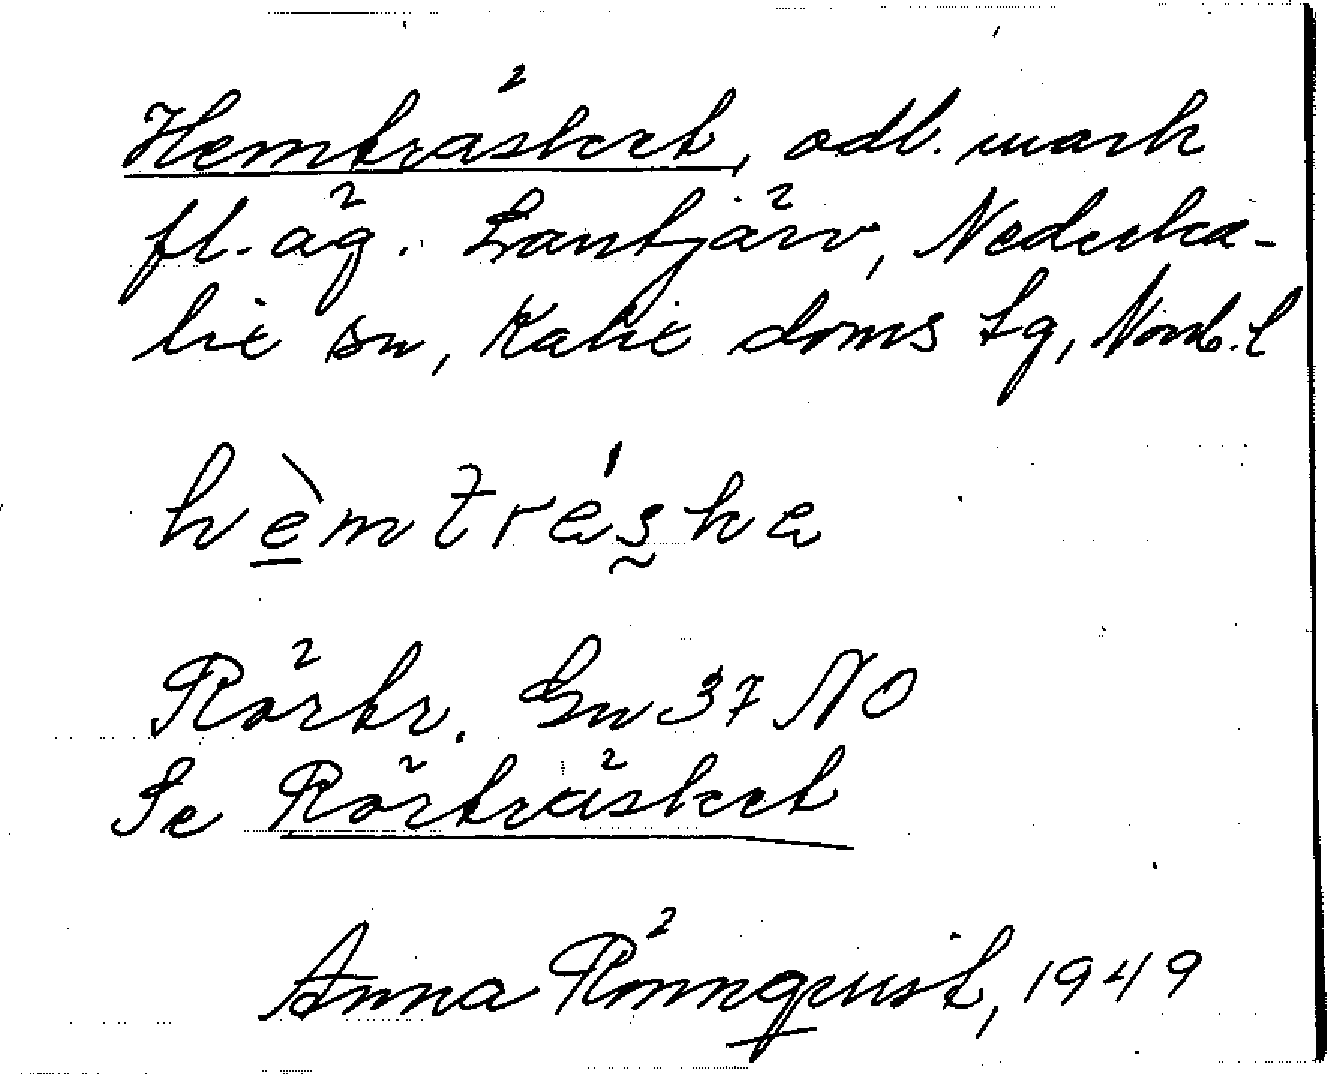 Hemträsket, odl. mark
fl. äg. Lantjärv, Nederka-
lix sn, Kalix doms lg, Norrb. l
hèmtrés̰ka
Rörtr. Gn 37 NO
Se Rörträsket
Anna Rönnquist, 1949